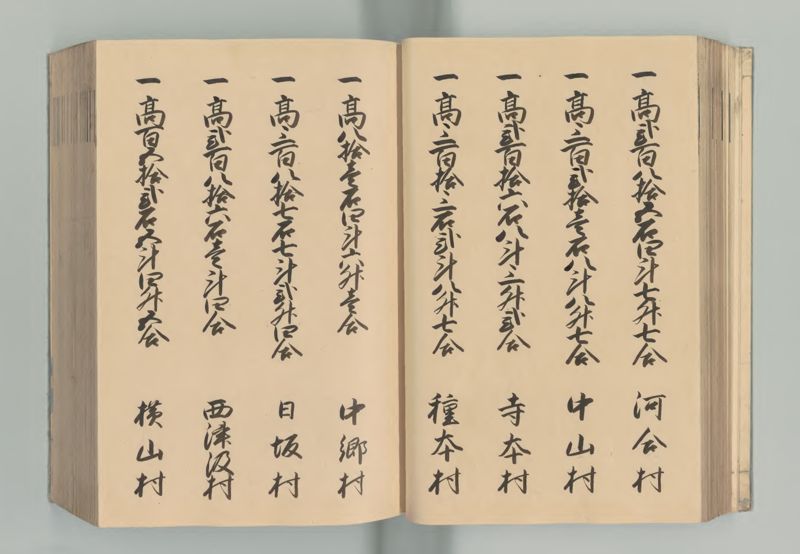 一 高弐百八拾五石四斗七升七合 河合村
一 高三百弐拾壱石八斗八升七合 中山村
一 高弐百拾六石八斗三升弐合 寺本村
一 高三百拾三石弐斗八升七合 種本村
一 高八拾壱石四斗六升壱合 中郷村
一 高三百八拾七石七斗弐升四合 日坂村
一 高弐百八拾六石壱斗四合 西津汲村
一 高百五拾弐石五斗四升五合 横山村